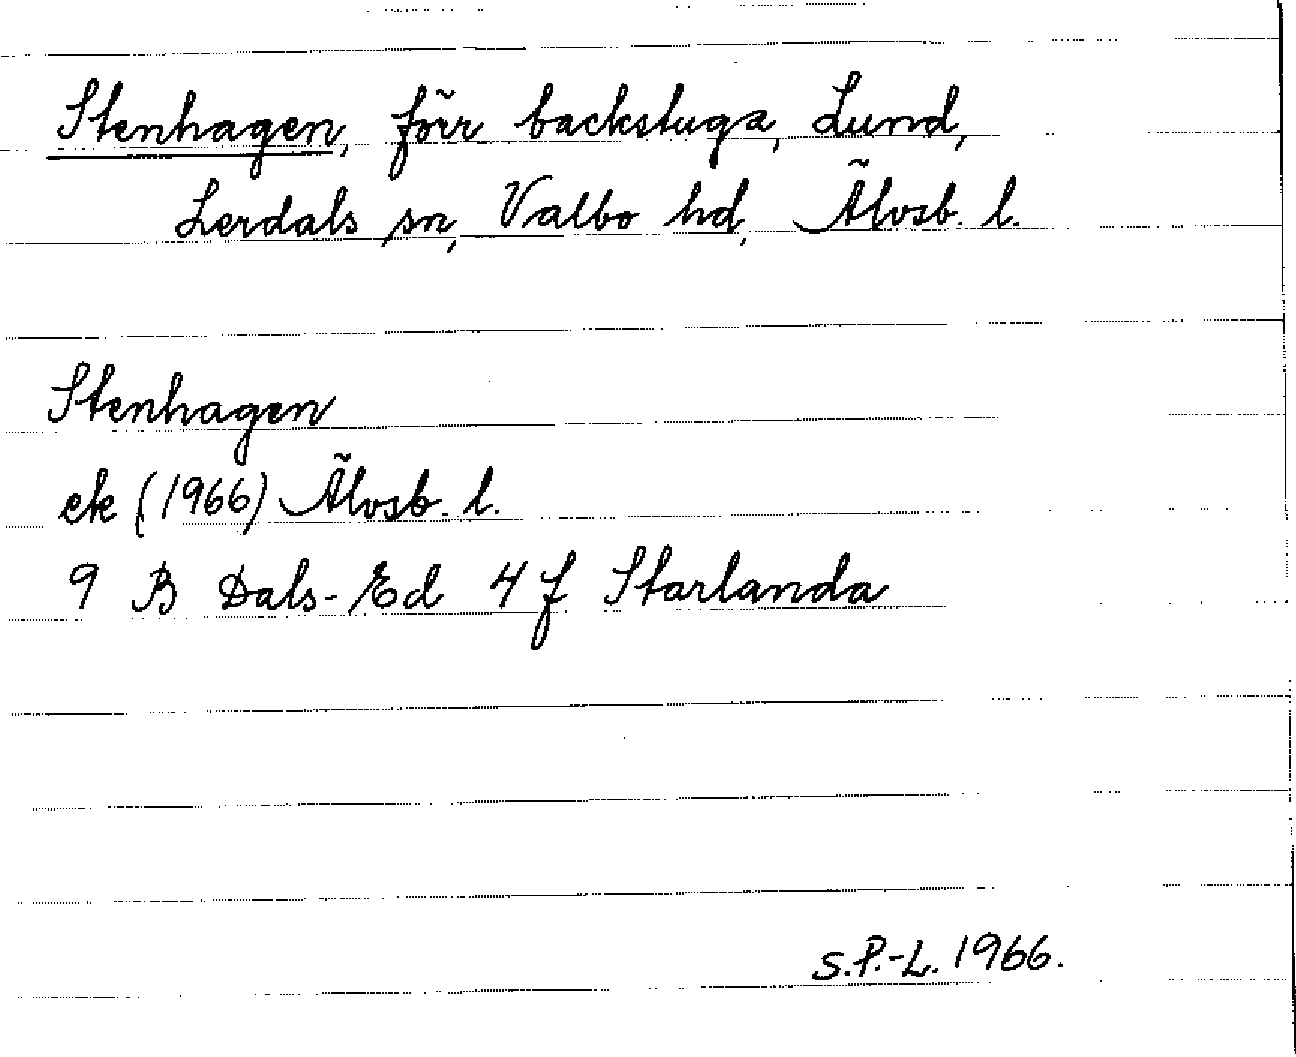 Stenhagen, förr backstuga, Lund,
Lerdals sn, Valbo hd, Älvsb. l.
Stenhagen
ek (1966) Älvsb. l.
9 B Dals-Ed 4 f Starlanda
S.P.-L. 1966.